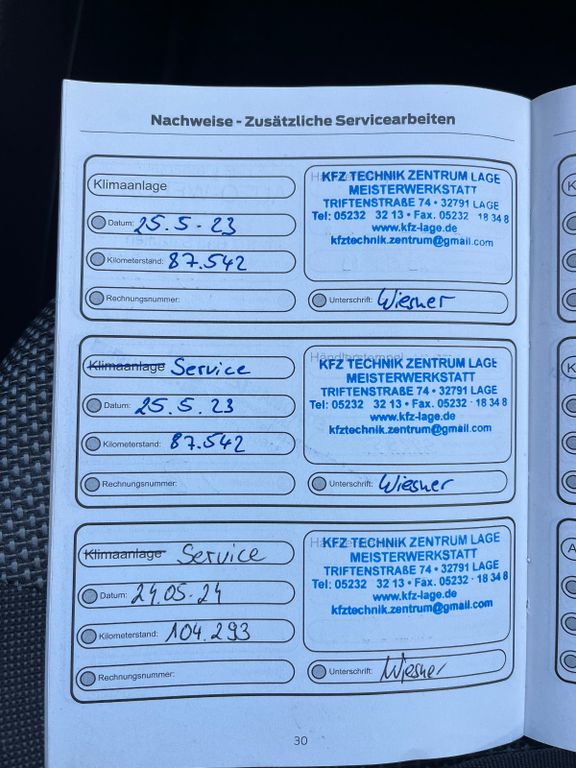 Nachweise - Zusätzliche Servicearbeiten
Klimaanlage
Datum: 25.5.23
Kilometerstand: 87.542
Rechnungsnummer:
KFZ TECHNIK ZENTRUM LAGE
MEISTERWERKSTATT
TRIFTENSTRAßE 74 • 32791 LAGE
Tel: 05232 32 13 • Fax. 05232 18 34 8
www.kfz-lage.de
kfztechnik.zentrum@gmail.com
Unterschrift: Wiesner
Klimaanlage Service
Datum: 25.5.23
Kilometerstand: 87.542
Rechnungsnummer:
Händlerstempel
KFZ TECHNIK ZENTRUM LAGE
MEISTERWERKSTATT
TRIFTENSTRAßE 74 • 32791 LAGE
Tel: 05232 32 13 • Fax. 05232 18 34 8
www.kfz-lage.de
kfztechnik.zentrum@gmail.com
Unterschrift: Wiesner
Klimaanlage Service
Datum: 24.05.24
Kilometerstand: 104.293
Rechnungsnummer:
KFZ TECHNIK ZENTRUM LAGE
MEISTERWERKSTATT
TRIFTENSTRAßE 74 • 32791 LAGE
Tel: 05232 32 13 • Fax. 05232 18 34 8
www.kfz-lage.de
kfztechnik.zentrum@gmail.com
Unterschrift: Wiesner
30